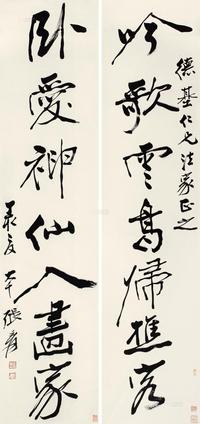 德基仁兄法家正之
吟歌雲鳥歸樵客
臥愛神仙入畫家
大千張爰